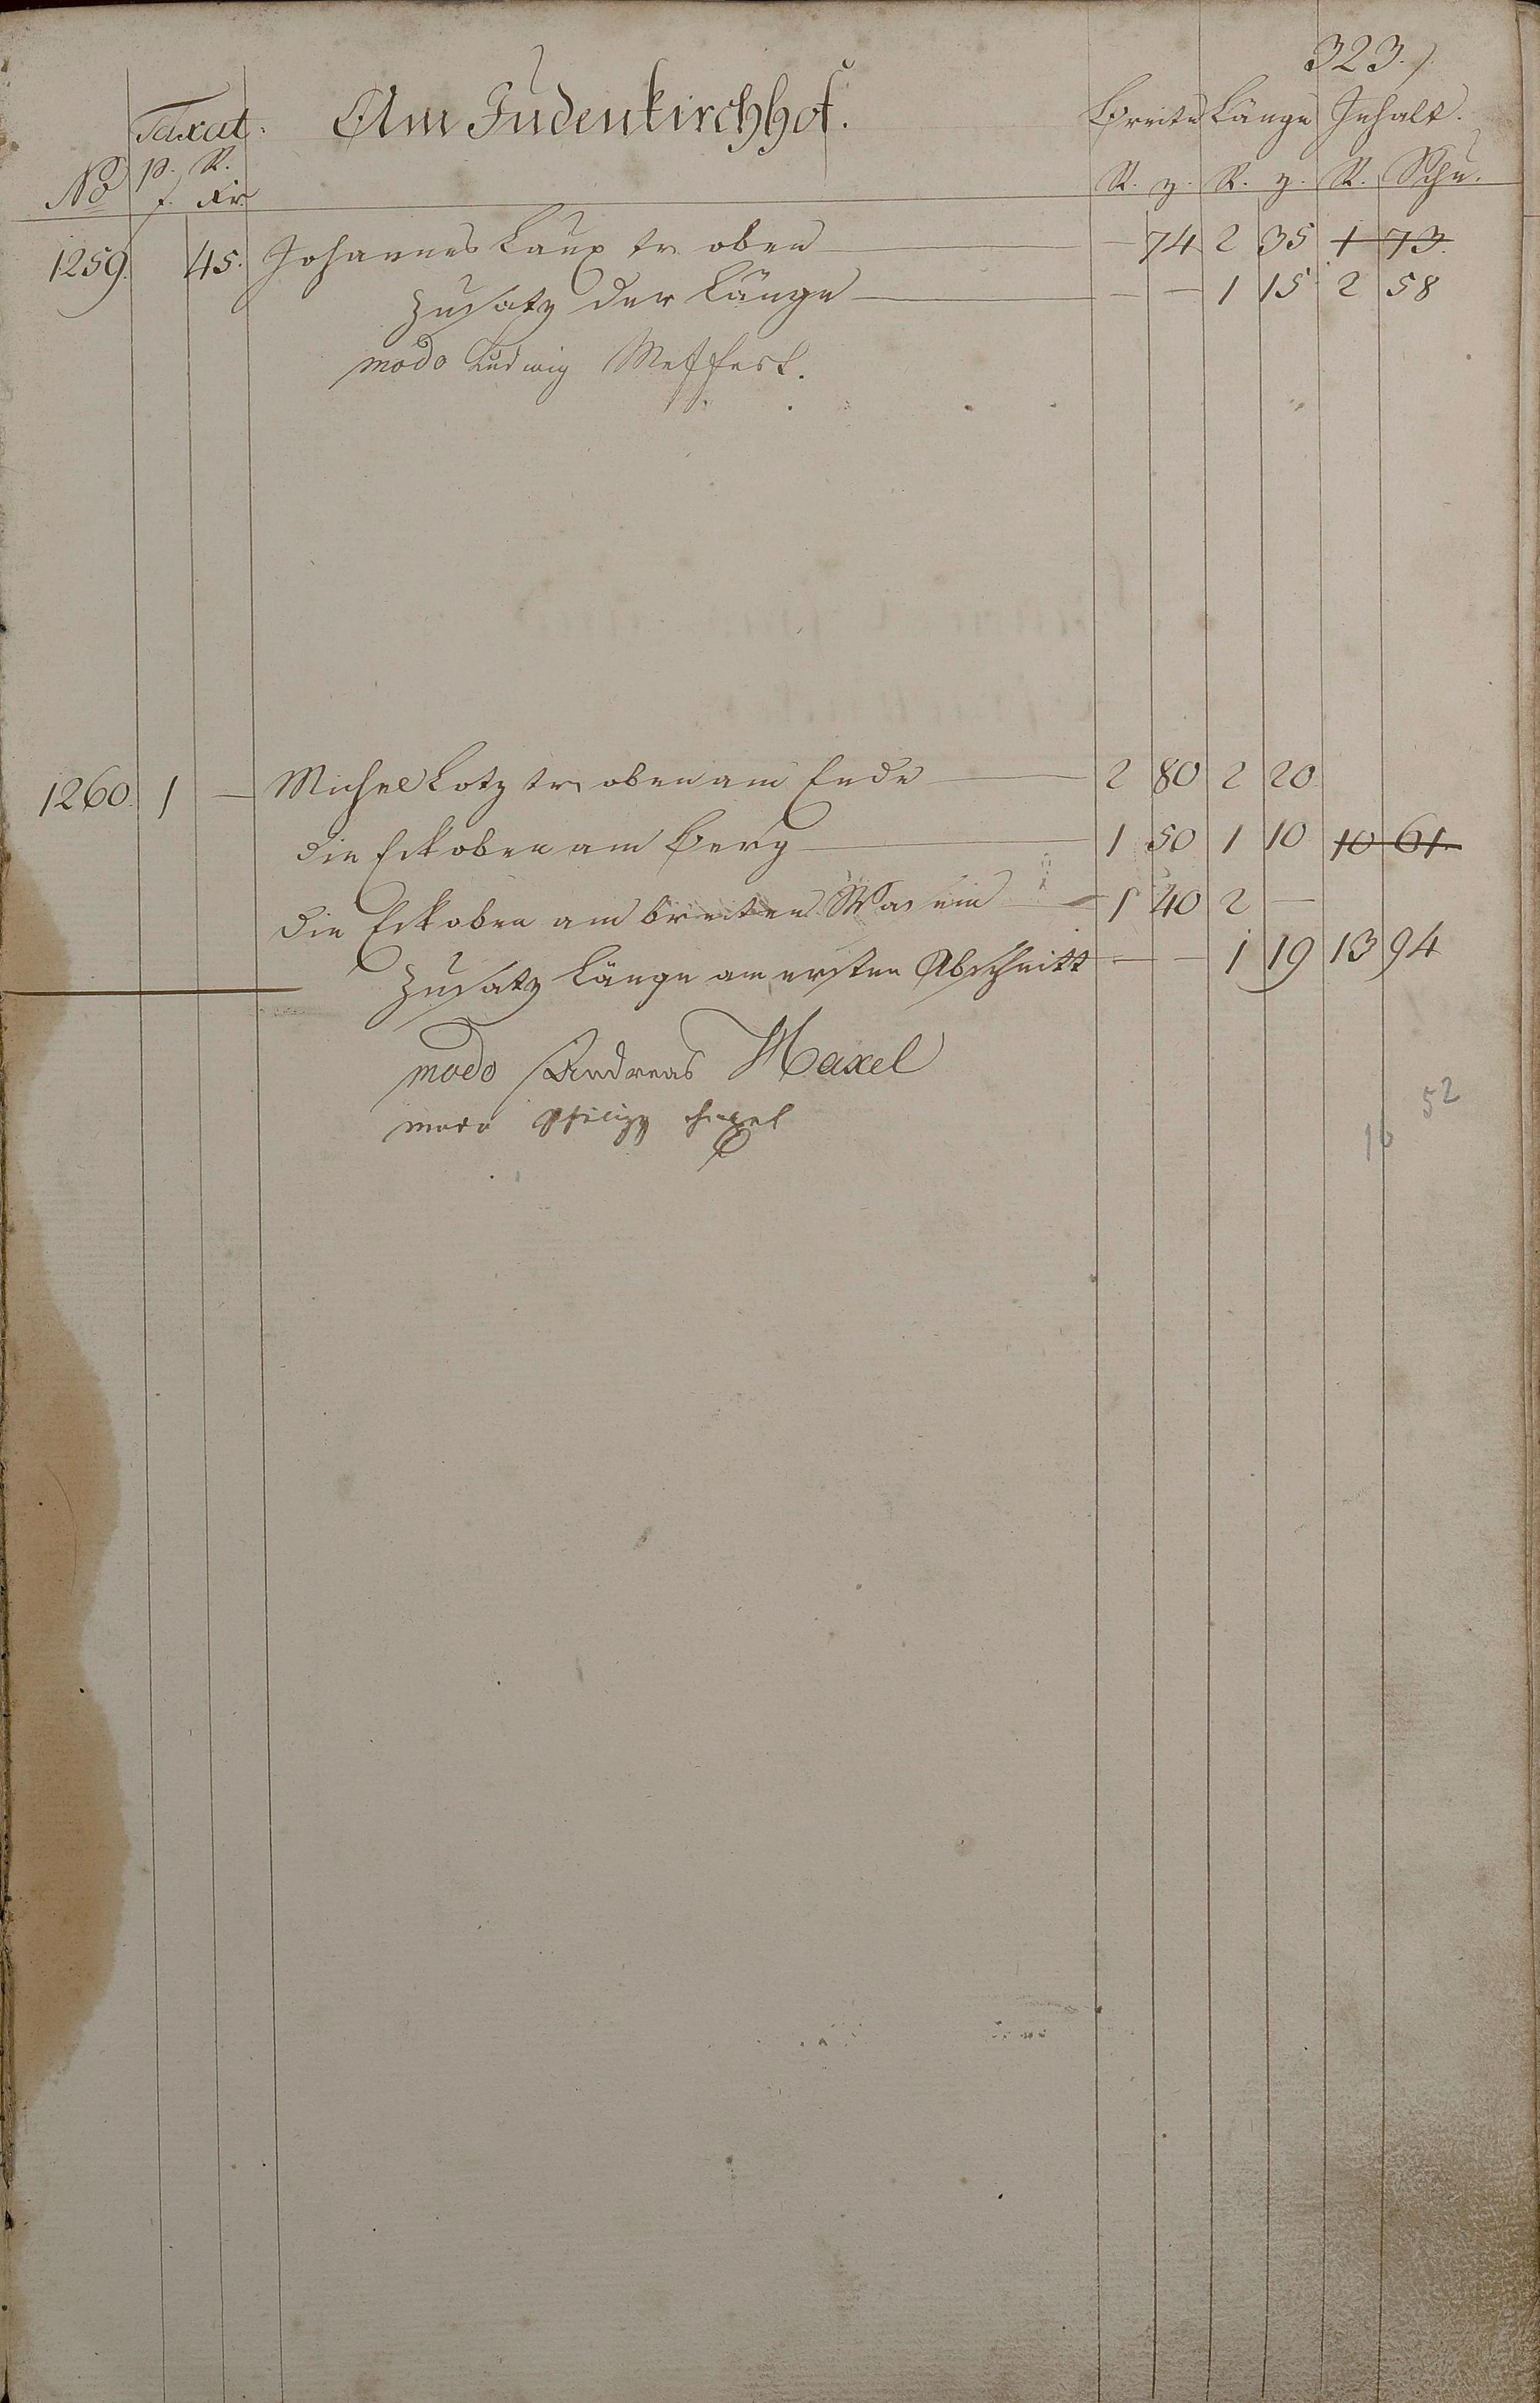 323.
Taxat. Am Judenkirchhof. Breite Länge Inhalt.
No p. R. R. z. R. z. R. Schu.
f. Kr.
1259. 45. Johannes Laux tr. oben — 74 2 35 1 73.
Zusatz der Länge — — 1 15 2 58
modo Ludwig Meffert.
1260. 1 — Michel Lotz tr. oben am Ende 2 80 2 20
die Eck oben am Berg 1 50 1 10 10 61.
die Eck oben am breiten 1 40 2 —
Zusatz Länge am ersten Abschnitt — — 1 19 13 94
modo Andreas Haxel
modo Philipp Haxel
52
16